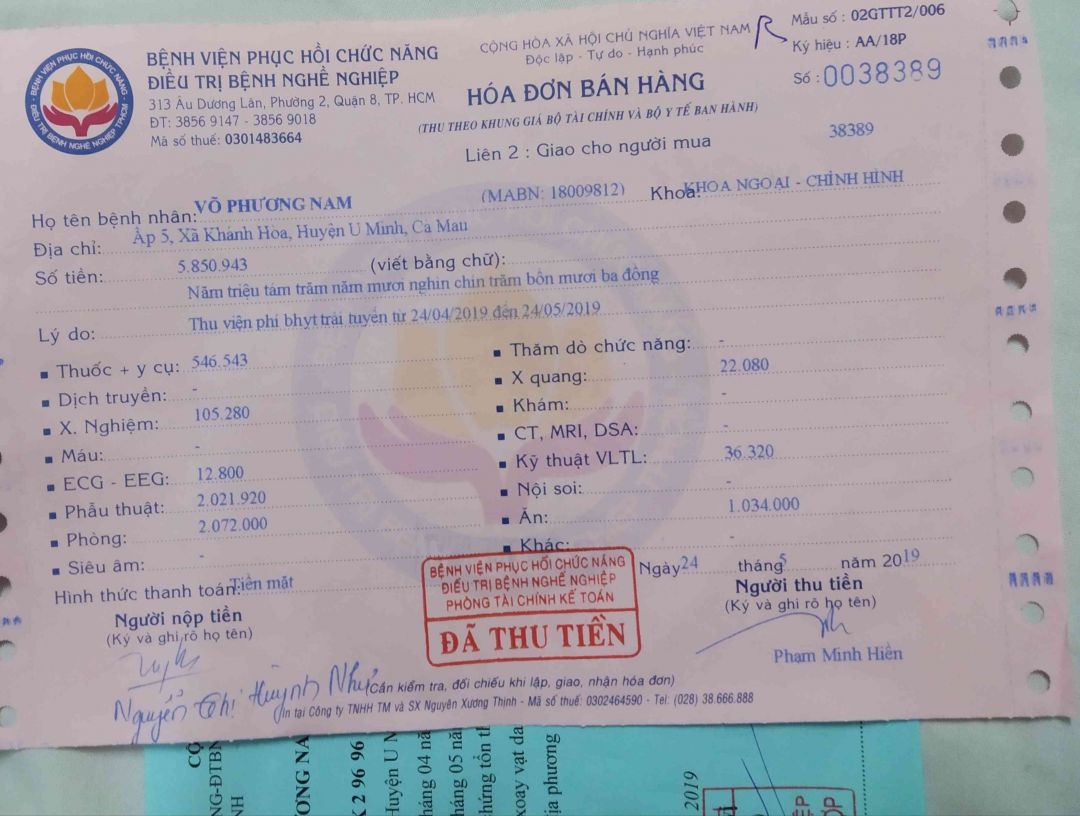 BỆNH VIỆN PHỤC HỒI CHỨC NĂNG
ĐIỀU TRỊ BỆNH NGHỀ NGHIỆP
313 Âu Dương Lân, Phường 2, Quận 8, TP. HCM
ĐT: 3856 9147 - 3856 9018
Mã số thuế: 0301483664
CỘNG HÒA XÃ HỘI CHỦ NGHĨA VIỆT NAM
Độc lập - Tự do - Hạnh phúc
HÓA ĐƠN BÁN HÀNG
(THU THEO KHUNG GIÁ BỘ TÀI CHÍNH VÀ BỘ Y TẾ BAN HÀNH)
Liên 2 : Giao cho người mua
Mẫu số : 02GTTT2/006
Ký hiệu : AA/18P
Số : 0038389
38389
Họ tên bệnh nhân: VÕ PHƯƠNG NAM (MABN: 18009812) Khoa: KHOA NGOẠI - CHỈNH HÌNH
Địa chỉ: Ấp 5, Xã Khánh Hòa, Huyện U Minh, Cà Mau
Số tiền: 5.850.943 (viết bằng chữ):
Năm triệu tám trăm năm mươi nghìn chín trăm bốn mươi ba đồng
Lý do: Thu viện phí bhyt trái tuyến từ 24/04/2019 đến 24/05/2019
Thuốc + y cụ: 546.543
Dịch truyền: -
X. Nghiệm: 105.280
Máu: -
ECG - EEG: 12.800
Phẫu thuật: 2.021.920
Phòng: 2.072.000
Siêu âm: -
Thăm dò chức năng: -
X quang: 22.080
Khám: -
CT, MRI, DSA: -
Kỹ thuật VLTL: 36.320
Nội soi: -
Ăn: 1.034.000
Khác:
Hình thức thanh toán: Tiền mặt
Ngày 24 tháng 5 năm 2019
Người nộp tiền
(Ký và ghi rõ họ tên)
Người thu tiền
(Ký và ghi rõ họ tên)
BỆNH VIỆN PHỤC HỒI CHỨC NĂNG
ĐIỀU TRỊ BỆNH NGHỀ NGHIỆP
PHÒNG TÀI CHÍNH KẾ TOÁN
ĐÃ THU TIỀN
Phạm Minh Hiền
Nguyễn Thị Huỳnh Như
(Cần kiểm tra, đối chiếu khi lập, giao, nhận hóa đơn)
In tại Công ty TNHH TM và SX Nguyên Xương Thịnh - Mã số thuế: 0302464590 - Tel: (028) 38.666.888
2 96 96
Huyện U M
tháng 04 nă
tháng 05 nă
xoay vạt da
ịa phương
2019